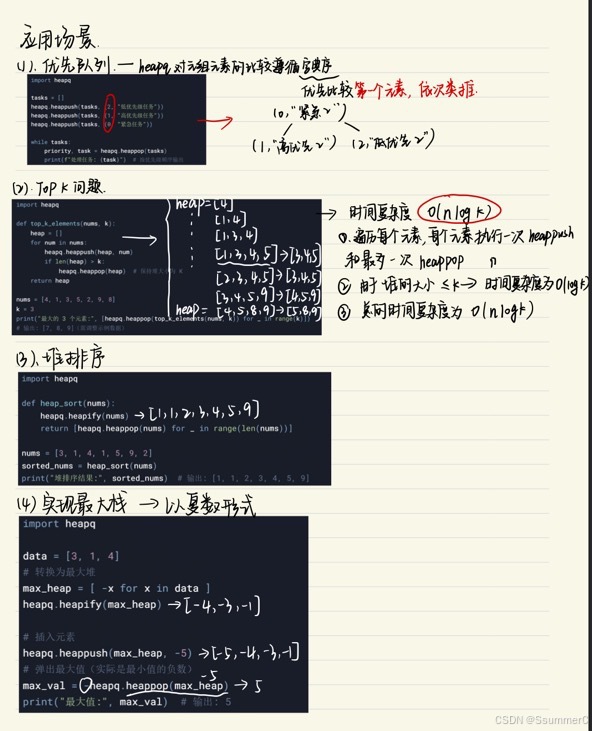 应用场景.
(1). 优先队列. — heapq对元组元素的比较遵循字典序
优先比较第一个元素, 依次类推.
import heapq
tasks = []
heapq.heappush(tasks, (2, "低优先级任务"))
heapq.heappush(tasks, (1, "高优先级任务"))
heapq.heappush(tasks, (0, "紧急任务"))
while tasks:
priority, task = heapq.heappop(tasks)
print(f"处理任务: {task}") # 按优先级顺序输出
(0, "紧急2")
(1, "高优先2") (2, "低优先2")
(2). TOP K 问题.
import heapq
def top_k_elements(nums, k):
heap = []
for num in nums:
heapq.heappush(heap, num)
if len(heap) > k:
heapq.heappop(heap) # 保持堆大小为 k
return heap
nums = [4, 1, 3, 5, 2, 9, 8]
k = 3
print("最大的 3 个元素:", [heapq.heappop(top_k_elements(nums, k)) for _ in range(k)])
# 输出: [7, 8, 9]
heap=[4]
[1,4]
[1,3,4]
[1,3,4,5]→[3,4,5]
[2,3,4,5]→[3,4,5]
[3,4,5,9]→[4,5,9]
heap=[4,5,8,9]→[5,8,9]
→ 时间复杂度 O(nlogk)
①.遍历每个元素, 每个元素执行一次heappush
和最多一次heappop n
② 由于堆的大小≤k→时间复杂度为O(logk)
③ 总的时间复杂度为 O(nlogk)
(3). 堆排序
import heapq
def heap_sort(nums):
heapq.heapify(nums) → [1,1,2,3,4,5,9]
return [heapq.heappop(nums) for _ in range(len(nums))]
nums = [3, 1, 4, 1, 5, 9, 2]
sorted_nums = heap_sort(nums)
print("堆排序结果:", sorted_nums) # 输出: [1, 1, 2, 3, 4, 5, 9]
(4) 实现最大栈 → 以复数形式
import heapq
data = [3, 1, 4]
# 转换为最大堆
max_heap = [ -x for x in data ]
heapq.heapify(max_heap) → [-4,-3,-1]
# 插入元素
heapq.heappush(max_heap, -5) → [-5,-4,-3,-1]
# 弹出最大值（实际是最小值的负数）
-5
max_val = -heapq.heappop(max_heap) → 5
print("最大值:", max_val) # 输出: 5
CSDN @SsummerC